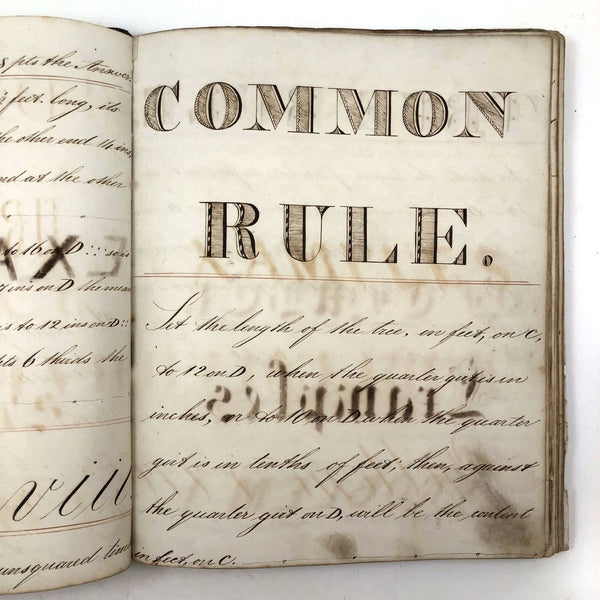 pts the Answer
feet long, its
the other end 14 ins,
and at the other
to 16 on D :: so is
ins on D the mean
to 12 ins on D ::
6 thirds the
viii
unsquared
COMMON
RULE.
Set the length of the tree, in feet, on C,
to 12 on D, when the quarter girt is in
inches, or to 10 on D when the quarter
girt is in tenths of feet; then, against
the quarter girt on D, will be the content
in feet, on C.